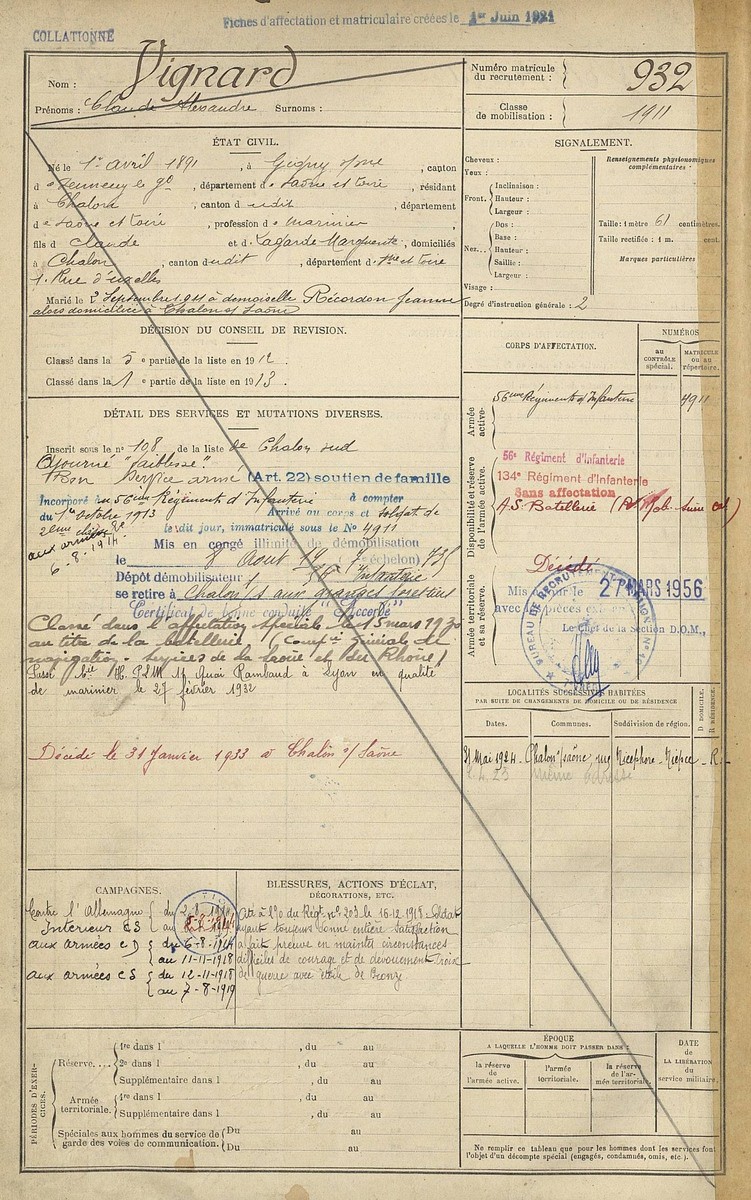 Fiches d'affectation et matriculaire créées le 1er Juin 1921
COLLATIONNÉ
Nom : Vignard
Prénoms : Claude Alexandre Surnoms :
Numéro matricule du recrutement : 932
Classe de mobilisation : 1911
ÉTAT CIVIL.
Né le 1er avril 1891, à Gigny s/ Saône, canton
de Sennecey le Gd, département de Saône et Loire, résidant
à Chalon, canton dudit, département
de Saône et Loire, profession de marinier
fils de Claude et de Lagarde Marguerite, domiciliés
à Chalon, canton dudit, département de Sne et Loire
1. Rue d'uxelles
Marié le 2 Septembre 1911 à demoiselle Récordon Jeanne
alors domiciliée à Chalon s/ Saône
SIGNALEMENT.
Cheveux :
Yeux :
Front.
Inclinaison :
Hauteur :
Largeur :
Nez...
Dos :
Base :
Hauteur :
Saillie :
Largeur :
Visage :
Renseignements physionomiques complémentaires :
Taille : 1 mètre 61 centimètres.
Taille rectifiée : 1 m. cent.
Marques particulières
Degré d'instruction générale : 2
DÉCISION DU CONSEIL DE REVISION.
Classé dans la 5e partie de la liste en 1912.
Classé dans la 1e partie de la liste en 1913.
DÉTAIL DES SERVICES ET MUTATIONS DIVERSES.
Inscrit sous le no 108 de la liste de Chalon sud
Ajourné "faiblesse".
Bon service armé (Art. 22) soutien de famille
Incorporé au 56eme Régiment d'Infanterie à compter
du 1er octobre 1913 Arrivé au corps et soldat de
2eme classe le dit jour, immatriculé sous le No 4911
aux armées
6.8.1914.
Mis en congé illimité de démobilisation
le 8 Aout 19 échelon)
Dépôt démobilisateur 56e Infanterie
se retire à Chalon /S aux granges forestier
Certificat de bonne conduite "Accordé"
Classé dans l'affectation spéciale le 15 mars 1930
au titre de la batellerie (Compie Générale de
navigation. services de la Saône et du Rhône)
Passé H.P.L.M 17 Quai Rambaud à Lyon en qualité
de marinier le 27 février 1932
Décédé le 31 Janvier 1933 à Chalon s/ Saône
CORPS D'AFFECTATION.
NUMÉROS
au CONTRÔLE spécial.
MATRICULE ou au répertoire.
Armée active.
56eme Régiment d'Infanterie 4911
Disponibilité et réserve de l'armée active.
56e Régiment d'Infanterie
134e Régiment d'Infanterie
Sans affectation
A.S. Batellerie
Armée territoriale et sa réserve.
Décédé
Mis le 27 MARS 1956
avec pièces
Le Chef de la Section D.O.M.,
BUREAU DE RECRUTEMENT
LOCALITÉS SUCCESSIVES HABITÉES
PAR SUITE DE CHANGEMENTS DE DOMICILE OU DE RÉSIDENCE
Dates. Communes. Subdivision de région. D. DOMICILE. R. RÉSIDENCE.
31 Mai 1924 Chalon s/saône, rue Nicephore-Niepce R.
2.4.23 même adresse
CAMPAGNES.
Contre l'Allemagne
Intérieur CS du 2-8-1914
au 5-8-1914
aux armées CD du 6-8-1914
au 11-11-1918
aux armées CS du 12-11-1918
au 7-8-1919
BLESSURES, ACTIONS D'ÉCLAT,
DÉCORATIONS, ETC.
Cité à l'o du Régt no 203 le 16-12-1918 Soldat
ayant toujours donné entière satisfaction
a fait preuve en maintes circonstances
difficiles de courage et de dévouement Croix
de guerre avec étoile de bronze
PÉRIODES D'EXERCICES.
Réserve....
1re dans l , du au
2e dans l , du au
Supplémentaire dans l , du au
Armée territoriale.
1re dans l , du au
Supplémentaire dans l , du au
Spéciales aux hommes du service de garde des voies de communication.
Du au
Du au
ÉPOQUE
A LAQUELLE L'HOMME DOIT PASSER DANS :
la réserve de l'armée active.
l'armée territoriale.
la réserve de l'armée territoriale.
DATE de LA LIBÉRATION du service militaire.
Ne remplir ce tableau que pour les hommes dont les services font
l'objet d'un décompte spécial (engagés, condamnés, omis, etc.).